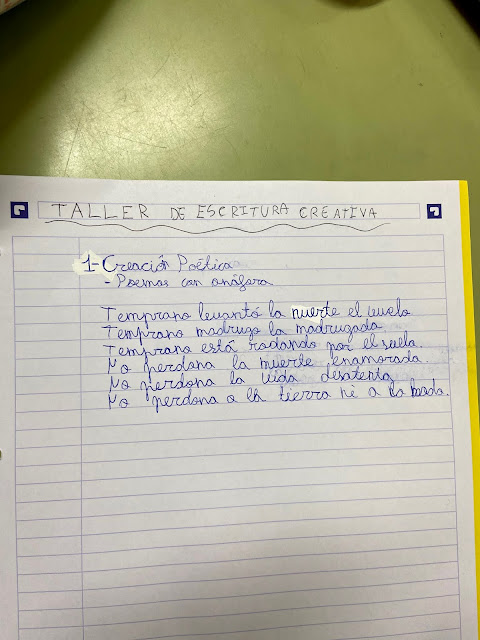 TALLER DE ESCRITURA CREATIVA
1-Creación Poética
- Poemas con anáfora
Temprano levantó la muerte el vuelo
Temprano madrugo la madrugada
Temprano está rodando por el suelo.
No perdona la muerte enamorada.
No perdona la vida desatenta
No perdona a la tierra ni a la